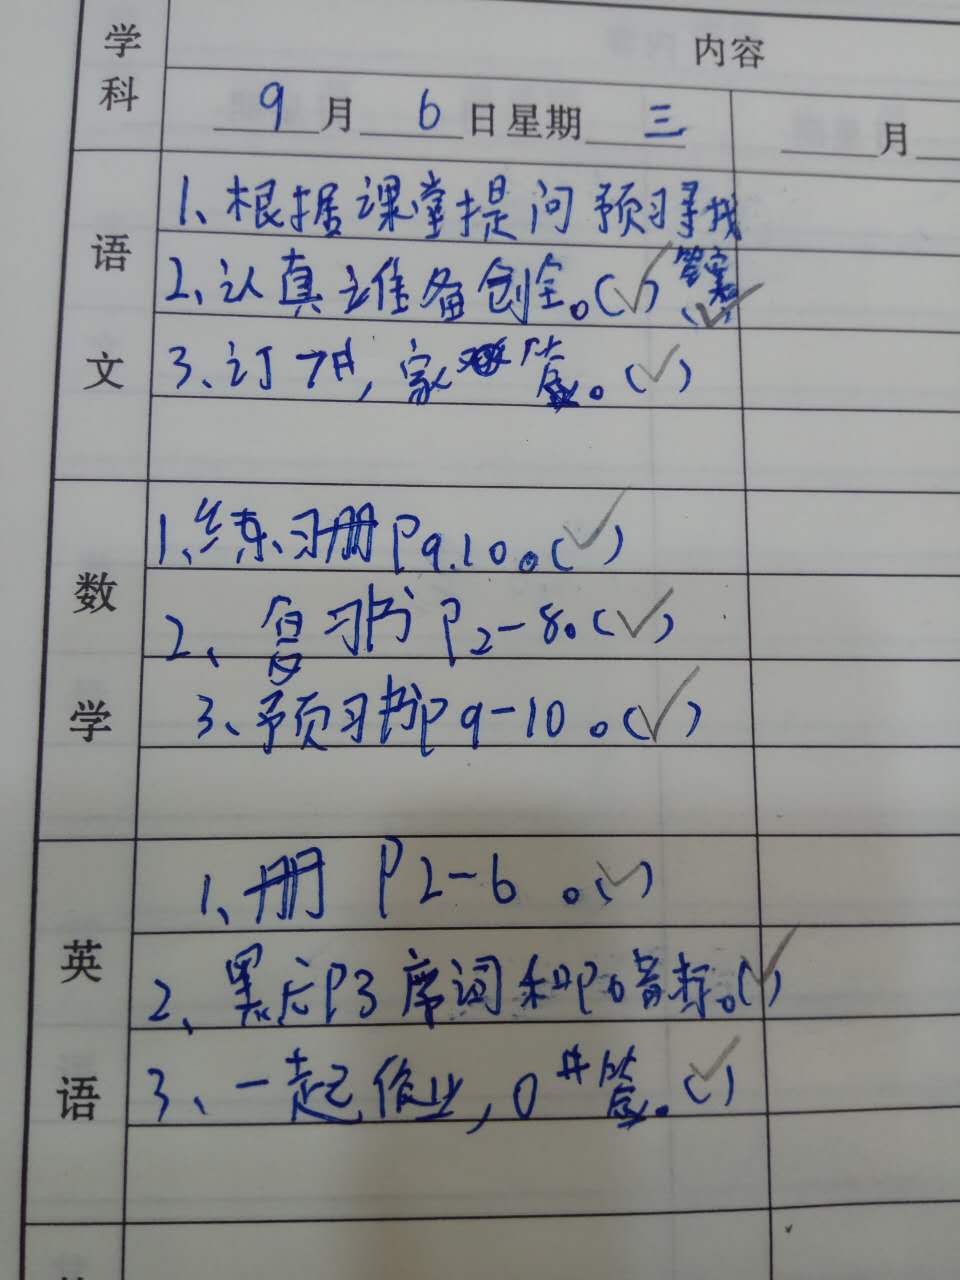 学科
内容
9月6日星期三
月
语文
1、根据课堂提问预习寻找
答案(✓)
2、认真准备创全。(✓)
3、订 家 签。(✓)
数学
1、练习册P9.10。(✓)
2、复习书P2-8。(✓)
3、预习书P9-10。(✓)
英语
1、册 P2-6。(✓)
2、P3 词和P6音标。(✓)
3、一起作业,0# 签。(✓)